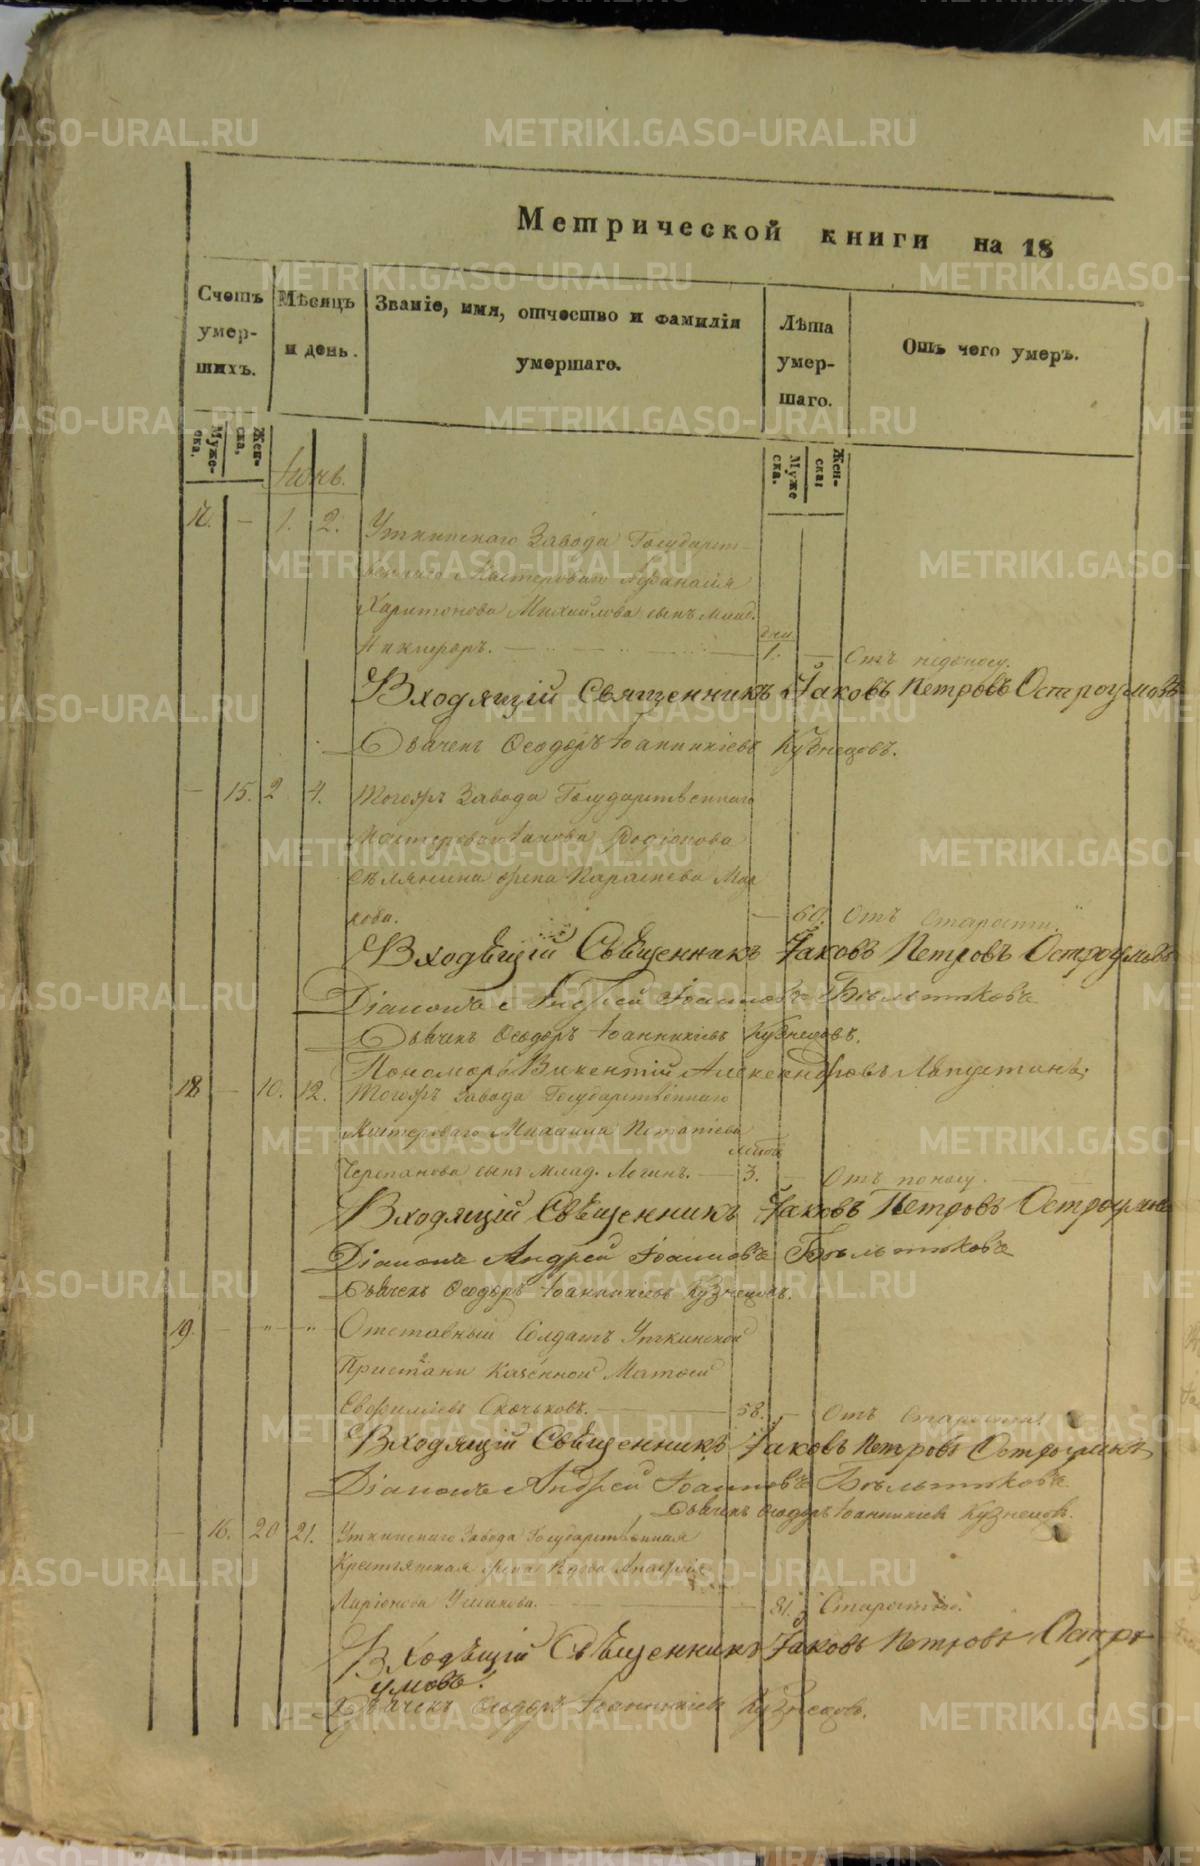 Метрической книги на 18
Счетъ умер-шихъ.
Мѣсяцъ и день.
Званіе, имя, отчество и фамилія умершаго.
Лѣта умер-шаго.
Отъ чего умеръ.
Муже-ска.
Жен-ска.
Муже ска.
Жен-ска
Іюнь.
— 1. 2. Уткинскаго Завода Государст-
веннаго Мастероваго Афанасія
Харитонова Михайлова сынъ млад.
дни
Никифоръ. — 1. —
Входящій Священникъ Іаковъ Петровъ Остроумовъ
Дьячекъ Ѳеодоръ Іоанникіевъ Кузнецовъ.
— 15. 2 4. Тогожъ Завода Государственнаго
Мастероваго Родіонова
жена
— 60. Отъ Старости.
Входѣщій Съвѣщенникъ Іаковъ Петровъ Остроумовъ
Діаконъ Андрей Іоанновъ Бѣльтюковъ
Дьячекъ Ѳеодоръ Іоанникіевъ Кузнецовъ.
Пономоръ Викентій Александровъ Лапустинъ.
18 — 10. 12. Тогожъ Завода Государственнаго
Мастероваго Потапіева
лѣта
Черепанова сынъ млад. Логинъ. — 3. — Отъ поносу.
Входящій Свѣщенникъ Іаковъ Петровъ Остроумов
Діаконъ Андрей Іоанновъ Бѣльтюковъ
Дьячекъ Ѳеодоръ Іоанникіевъ Кузнецовъ.
19. — " — " Отставный Солдатъ Уткинской
Пристани Казенной Матѳей
Евфиміевъ — 58. — Отъ Старости.
Входящій Свѣщенникъ Іаковъ Петровъ
Діаконъ Андрей Іоанновъ Бѣльтюковъ
Дьячекъ Ѳеодоръ Іоанникіевъ Кузнецовъ.
— 16. 20 21. Уткинскаго Завода Государственная
Крестьянская жена Вдова
Ларіонова Ушакова. — 81. Старостію.
Входѣщій Съвѣщенникъ Іаковъ Петровъ Остро
умовъ.
Дьячекъ Ѳеодоръ Іоанникіевъ Кузнецовъ.
METRIKI.GASO-URAL.RU